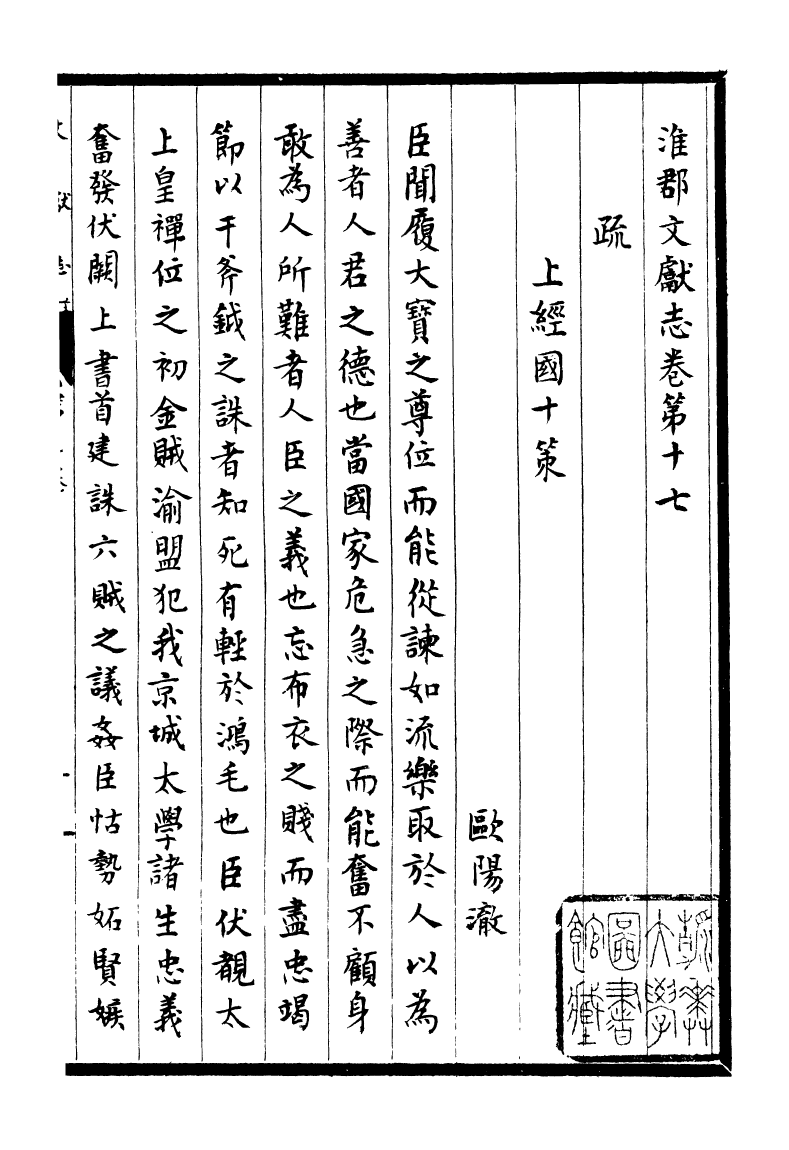 淮郡文獻志卷第十七
疏
上經國十策
歐陽澈
臣聞履大寶之尊位而能從諫如流樂取於人以為
善者人君之德也當國家危急之際而能奮不顧身
敢為人所難者人臣之義也忘布衣之賤而盡忠竭
節以干斧鉞之誅者知死有輕於鴻毛也臣伏覩太
上皇禪位之初金賊渝盟犯我京城太學諸生忠義
奮發伏闕上書首建誅六賊之議姦臣怙勢妬賢嫉